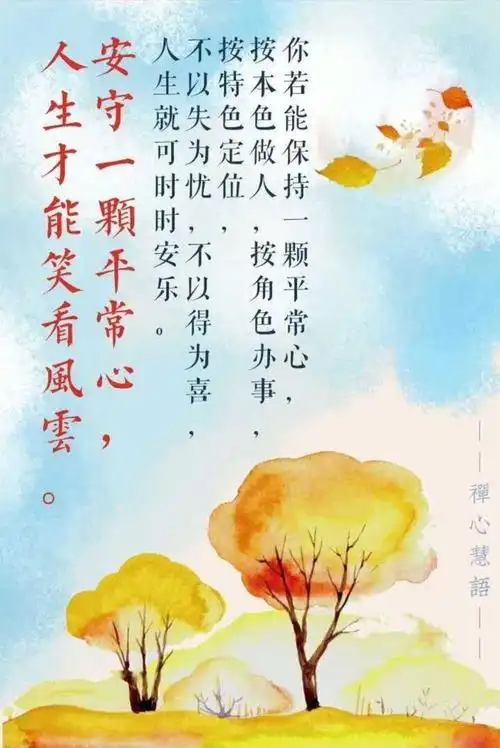 你若能保持一颗平常心，
按本色做人，按角色办事，
按特色定位，
不以失为忧，不以得为喜，
人生就可时时安乐。
安守一顆平常心，
人生才能笑看風雲。
——禪心慧語——